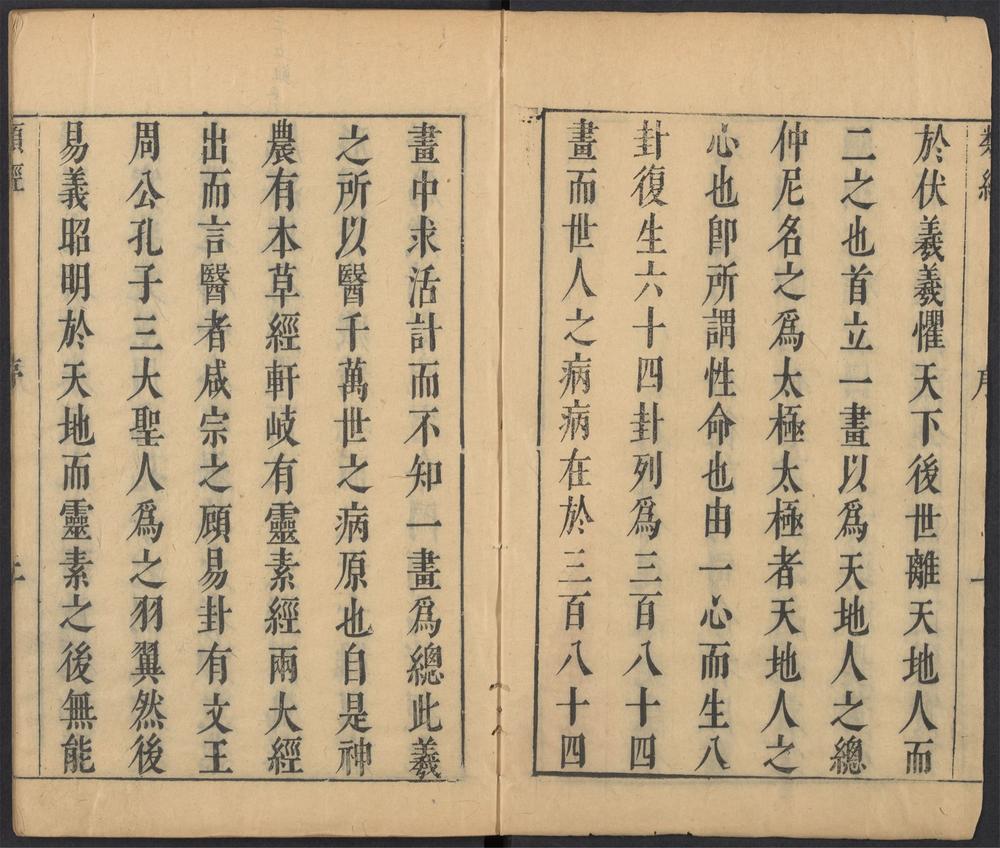 類經 序 一
於伏羲羲懼天下後世離天地人而
二之也首立一畫以爲天地人之總
仲尼名之爲太極太極者天地人之
心也卽所謂性命也由一心而生八
卦復生六十四卦列爲三百八十四
畫而世人之病病在於三百八十四
畫中求活計而不知一畫爲總此羲
之所以醫千萬世之病原也自是神
農有本草經軒岐有靈素經兩大經
出而言醫者咸宗之顧易卦有文王
周公孔子三大聖人爲之羽翼然後
易義昭明於天地而靈素之後無能
類經 序